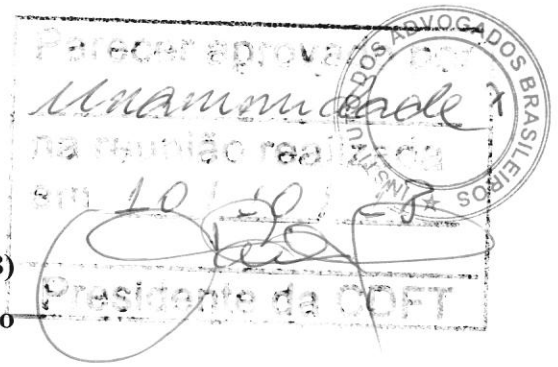 Parecer aprovado por
Unanimidade
na reunião realizada
em 10 /
Presidente da CDFT
INSTITUTO DOS ADVOGADOS BRASILEIROS
3)
o